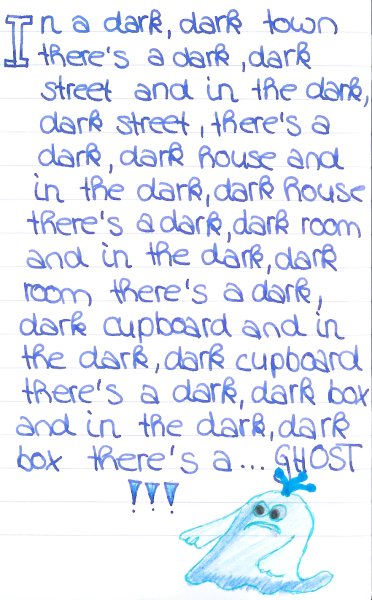 In a dark, dark town
there's a dark, dark
street and in the dark,
dark street, there's a
dark, dark house and
in the dark, dark house
there's a dark, dark room
and in the dark, dark
room there's a dark,
dark cupboard and in
the dark, dark cupboard
there's a dark, dark box
and in the dark, dark
box there's a... GHOST
!!!